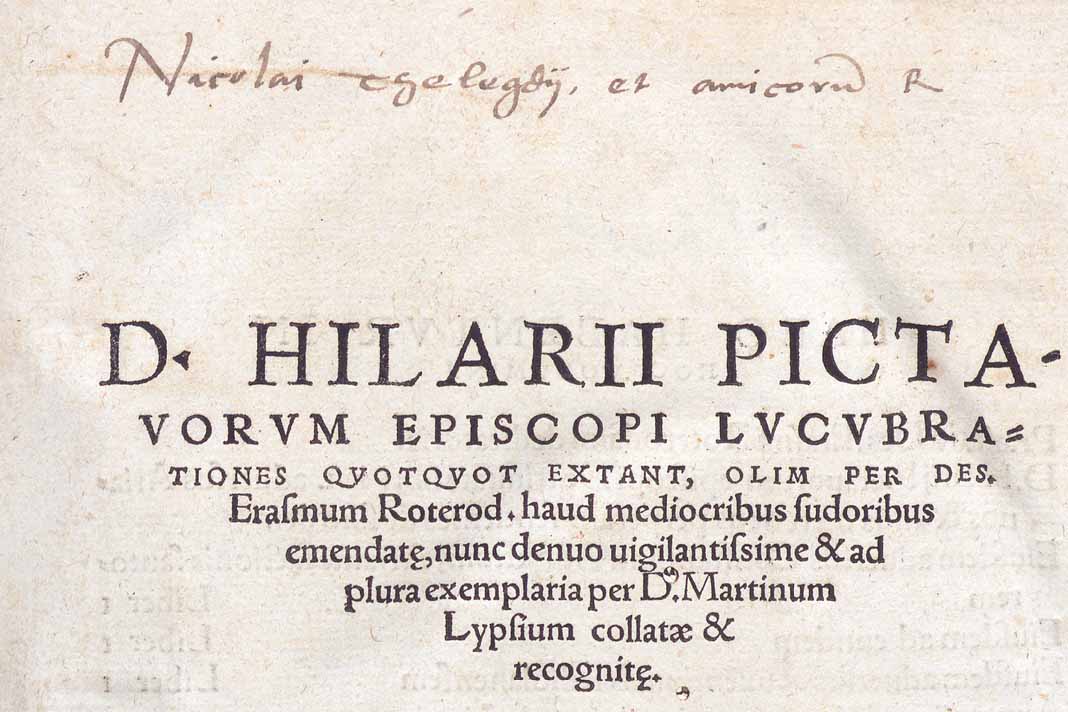 Nicolai Thelegdÿ, et amicorū R
D. HILARII PICTA-
VORVM EPISCOPI LVCVBRA=
TIONES QVOTQVOT EXTANT, OLIM PER DES.
Eraſmum Roterod. haud mediocribus ſudoribus
emendatę, nunc denuo uigilantiſsime & ad
plura exemplaria per D. Martinum
Lypſium collatæ &
recognitę.